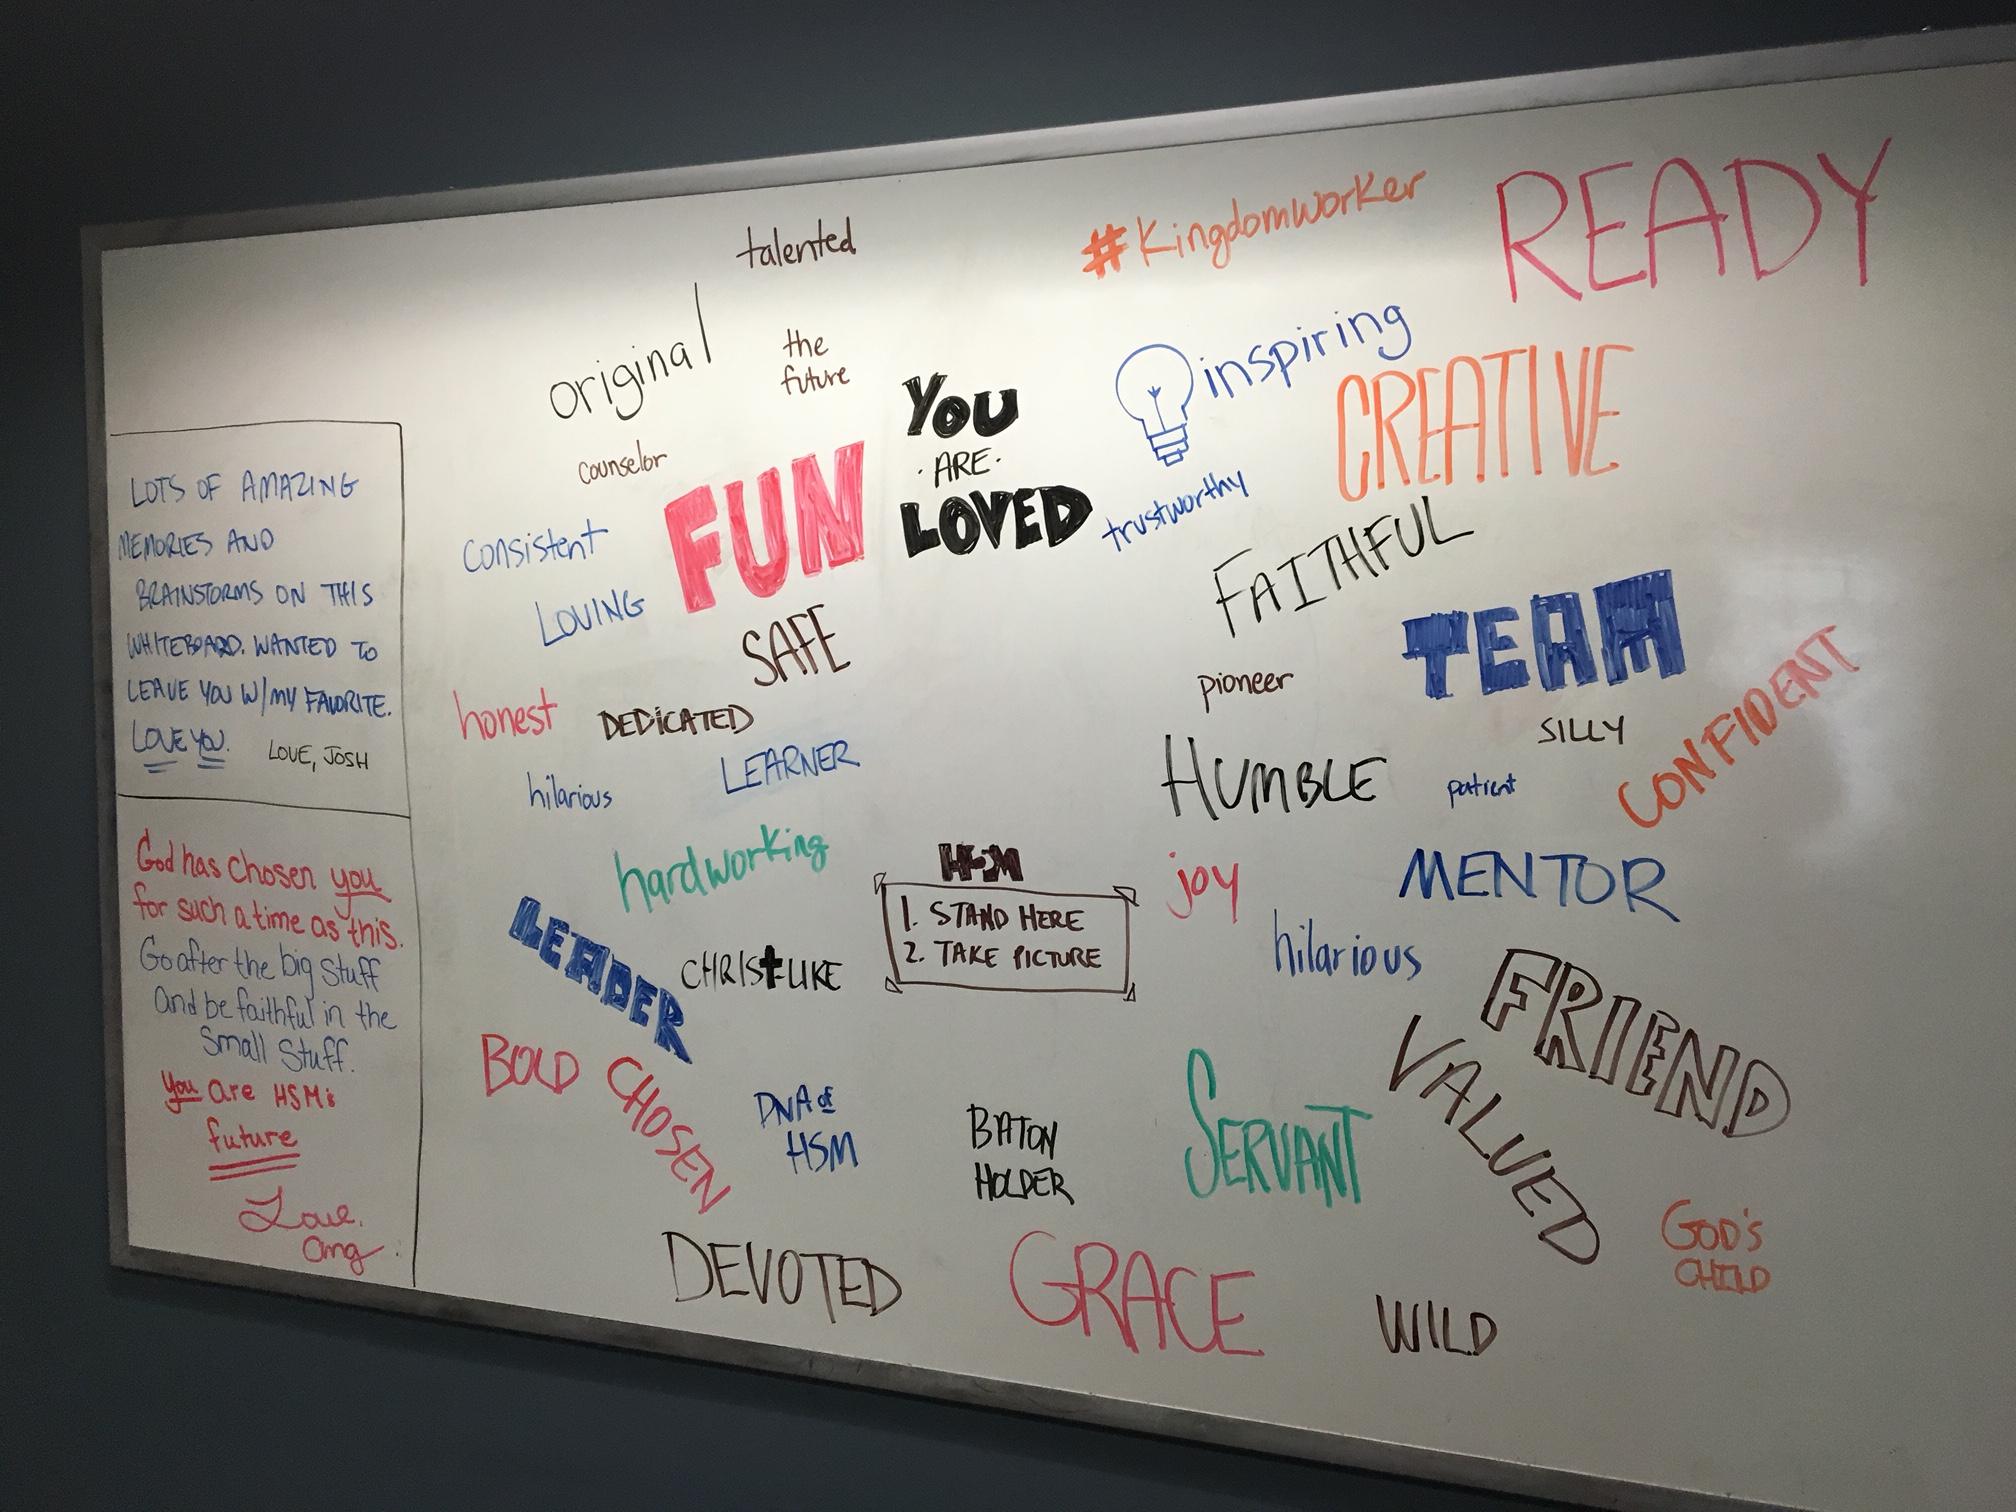 talented
#Kingdomworker
READY
original
the
future
inspiring
YOU
· ARE ·
LOVED
CREATIVE
counselor
FUN
trustworthy
consistent
LOVING
SAFE
FAITHFUL
TEAM
pioneer
SILLY
CONFIDENT
honest
DEDICATED
LEARNER
hilarious
HUMBLE
patient
hardworking
joy
MENTOR
HSM
1. STAND HERE
2. TAKE PICTURE
LEADER
CHRIST-LIKE
hilarious
FRIEND
VALUED
BOLD
CHOSEN
DNA of
HSM
BATON
HOLDER
SERVANT
GOD'S
CHILD
DEVOTED
GRACE
WILD
LOTS OF AMAZING
MEMORIES AND
BRAINSTORMS ON THIS
WHITEBOARD. WANTED TO
LEAVE YOU W/MY FAVORITE.
LOVE YOU.
LOVE, JOSH
God has chosen you
for such a time as this.
Go after the big stuff
and be faithful in the
small stuff.
You are HSM's
future
Love,
Ang